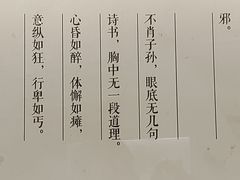 邪。
不肖子孙，眼底无几句
诗书，胸中无一段道理。
心昏如醉，体懈如瘫，
意纵如狂，行卑如丐。